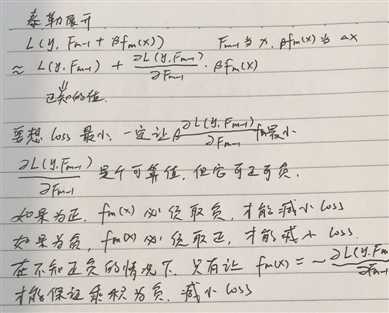 泰勒展开
L(y, Fm-1 + βfm(x))  Fm-1 当 x, βfm(x) 当 Δx
≈ L(y, Fm-1) + ∂L(y,Fm-1)/∂Fm-1 · βfm(x)
已知的值.
要想 loss 最小, 一定让 β ∂L(y,Fm-1)/∂Fm-1 fm最小
∂L(y,Fm-1)/∂Fm-1 是个可算值, 但它可正可负.
如果为正, fm(x) 必须取负, 才能减小 loss
如果为负, fm(x) 必须取正, 才能减小 loss.
在不知正负的情况下, 只有让 fm(x) = - ∂L(y,Fm/∂Fm-1
才能保证乘积为负, 减小 loss